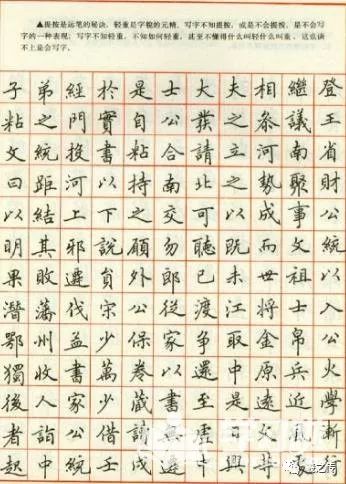 ▲提按是运笔的秘诀，轻重是字貌的元精。写字不知提按，或是不会提按，是不会写字
的一种表现；写字不知轻重，不知如何轻重，甚至不懂得什么叫轻什么叫重，这也谈
不上是会写字。
子弟經於是士大夫相繼登
粘之門實自公發之參議王
文統投書粘合請立河南省
回距河以持南北之勢聚財
以結上下之交可以成事公
明其邪說願勿聽既而文統
果敗遷員外郎已未世祖以
潛藩伐宋公從渡江將士入
鄂州益少保家爭取金帛公
獨收書萬卷以還中原兵火
後人家少藏書至是遠近學
者詣公借讀無虛文風漸
起中統壬戌遷中興等行